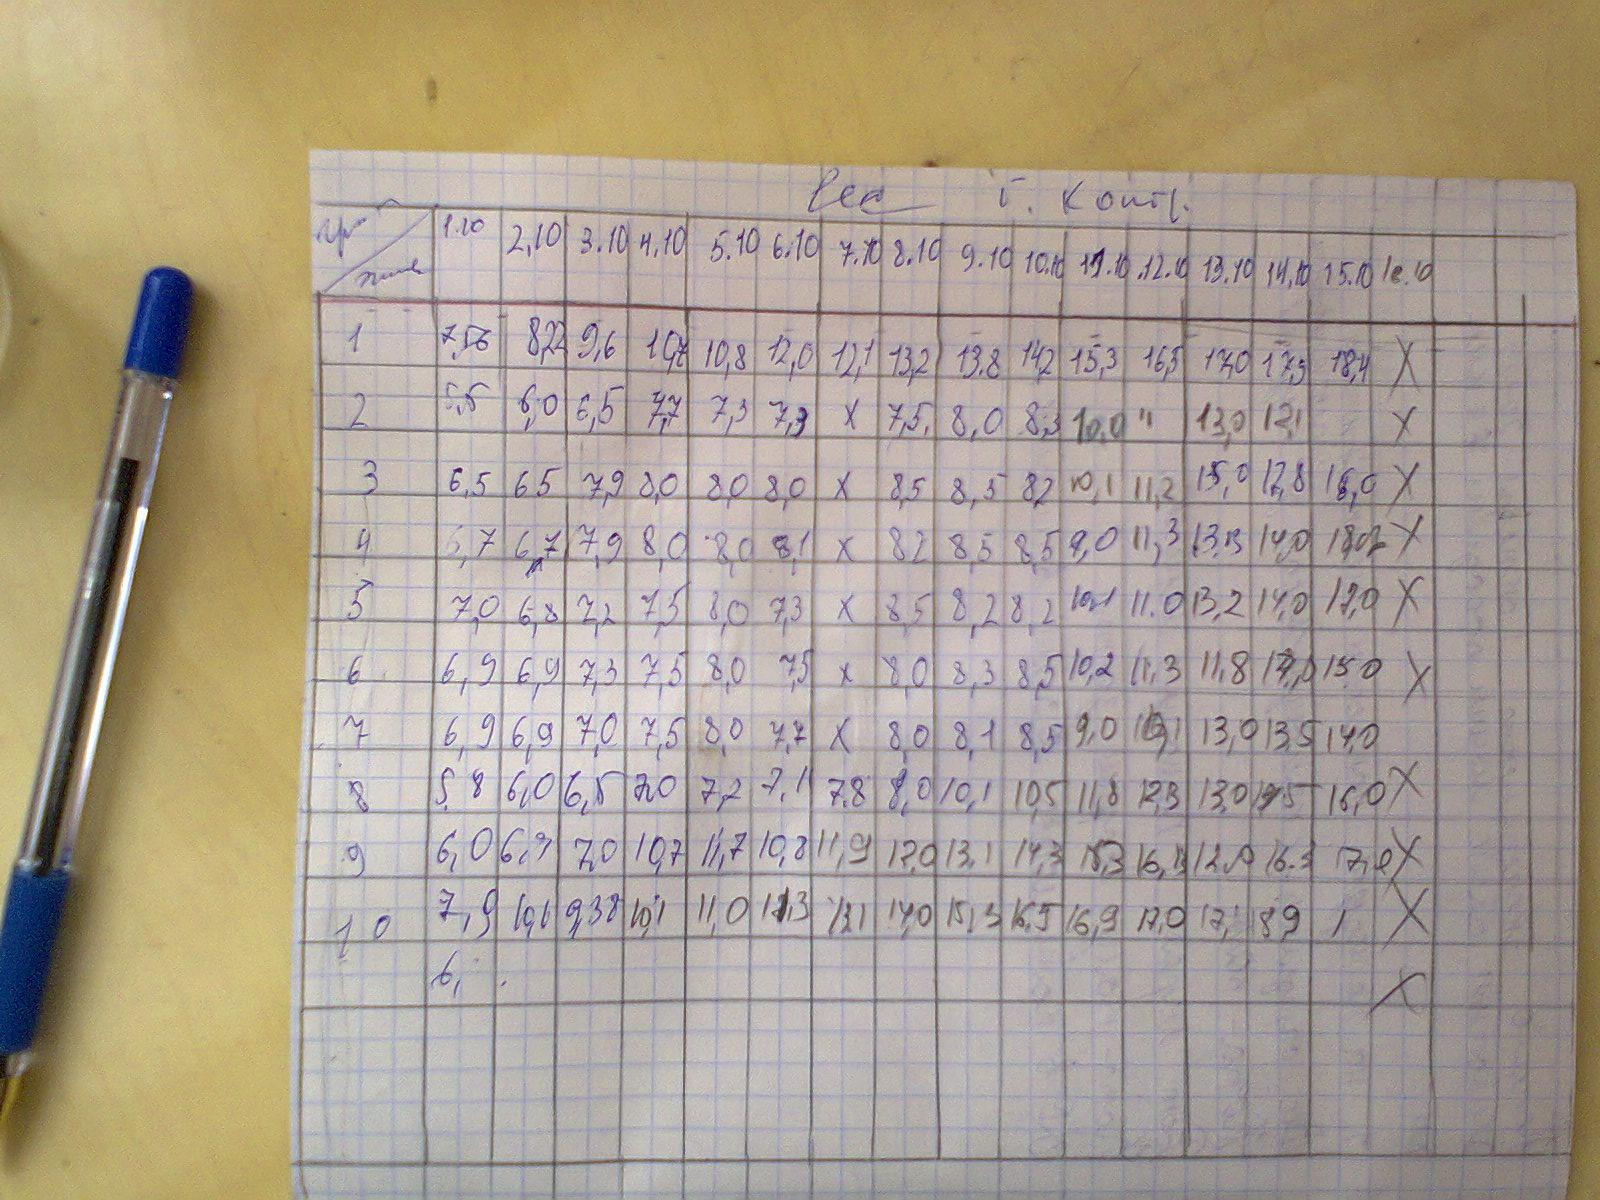 г. Контр.
1.10 2,10 3.10 4.10 5.10 6.10 7.10 8.10 9.10 10.10 11.10 12.10 13.10 14.10 15.10
1 7,56 8,22 9,6 10,7 10,8 12,0 12,1 13,2 13.8 14,2 15,3 16,5 17,0 17,5 18,4 X
2 5,5 6,0 6,5 7,7 7,3 7,3 X 7,5. 8,0 8,3 10,0 " 13,0 12,1 X
3 6,5 65 7,9 8,0 8,0 8,0 X 8,5 8,5 8,2 10,1 11,2 15,0 12,8 16,0 X
4 5,7 6,7 7,9 8,0 8,0 8,1 X 8,2 8,5 8,5 9,0 11,3 13,3 14,0 X
5 7,0 6,8 7,2 7,5 8,0 7,3 X 8,5 8,2 8,2 10,1 11.0 13,2 14,0 17,0 X
6 6,9 6,9 7,3 7,5 8,0 7,5 X 8,0 8,3 8,5 10,2 11,3 11,8 15.0 X
7 6,9 6,9 7,0 7,5 8,0 7,7 X 8,0 8,1 8,5 9,0 13,0 13,5 14,0
8 5,8 6,0 6,5 7,0 7,2 7,1 7,8 8,0 10,1 10,5 11,8 12,3 13,0 16,0 X
9 6,0 6,3 7,0 10,7 11,7 10,8 11,9 12,0 13,1 14,3 15,3 16.3 X
10 7,9 10,1 9,38 10,1 11,0 14,0 15,3 16,9 17,0 X
6, X